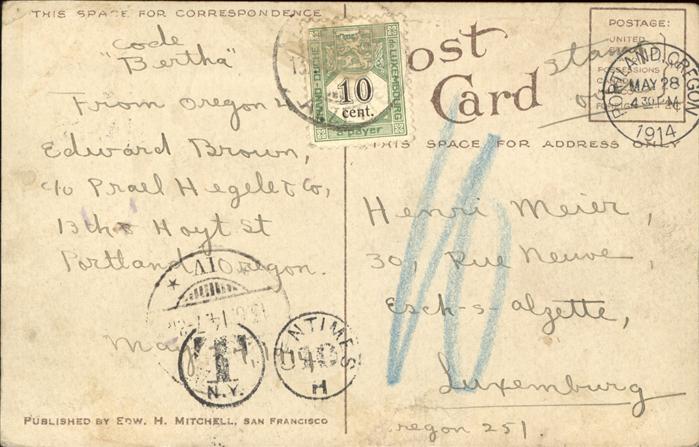 THIS SPACE FOR CORRESPONDENCE
Code
"Bertha"
From Oregon 4
Edward Brown,
c/o Prael Hegele & Co,
13th & Hoyt St
Portland Oregon.
PUBLISHED BY EDW. H. MITCHELL, SAN FRANCISCO
GRAND-DUCHÉ DE LUXEMBOURG
10
cent.
à payer
Post
Card
THIS SPACE FOR ADDRESS ONLY
POSTAGE:
UNITED
PORTLAND, OREGON
MAY 28
4 30 PM
1914
Henri Meier,
30, Rue Neuve,
Esch-s-alzette,
Luxemburg
regon 251.
10
T
N.Y.
CENTIMES
10
H